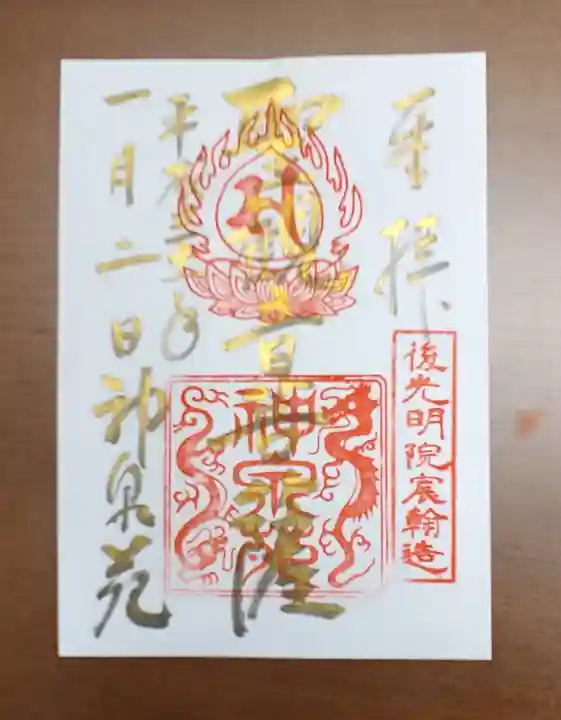 奉拝
後光明院宸翰造
聖観音菩薩
神泉苑
平成三十年
一月二日
神泉苑